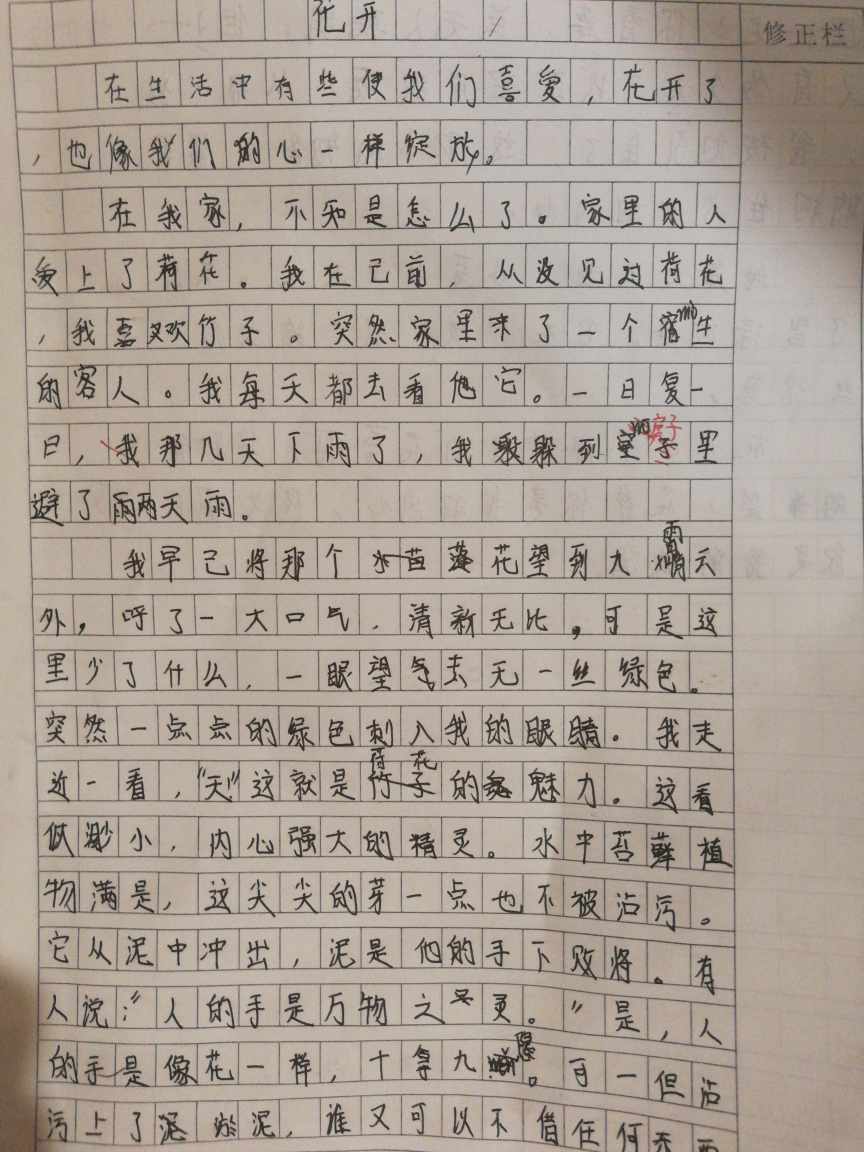 花开
修正栏
在生活中有些使我们喜爱，花开了
，也像我们的心一样绽放。
在我家，不知是怎么了。家里的人
爱上了荷花。我在己前，从没见过荷花
，我喜欢竹子。突然家里来了一个陌生
的客人。我每天都去看他它。一日复一
日，我那几天下雨了，我躲到房子里
避了两天雨。
我早已将那个花望到九霄云
外，呼了一大口气，清新无比，可是这
里少了什么，一眼望去无一丝绿色。
突然一点点的绿色刺入我的眼睛。我走
近一看，“天”这就是荷花的魅力。这看
似渺小，内心强大的精灵。水中苔藓植
物满是，这尖尖的芽一点也不被沾污。
它从泥中冲出，泥是他的手下败将。有
人说：“人的手是万物之灵。”是，人
的手是像花一样，十拿九隐。可一但沾
污上了淤泥，谁又可以不借任何东西